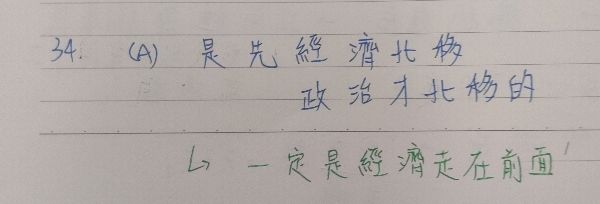 34. (A) 是先經濟北移
政治才北移的
↳ 一定是經濟走在前面